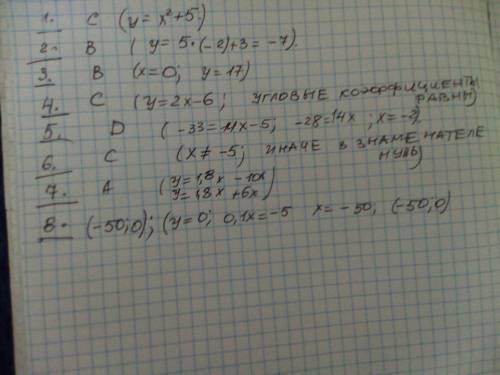 1. C (y = x²+5)
2. B ( y = 5•(-2)+3 = -7).
3. B (x=0; y=17)
4. C (y=2x-6; угловые коэффициенты
равны)
5. D ( -33=14x-5; -28=14x; x=-2)
6. C (x≠ -5; иначе в знаменателе
нуль)
7. A (y=1,8x -10x
y=1,8x +6x)
8. (-50;0); (y=0; 0,1x=-5 x=-50; (-50;0)